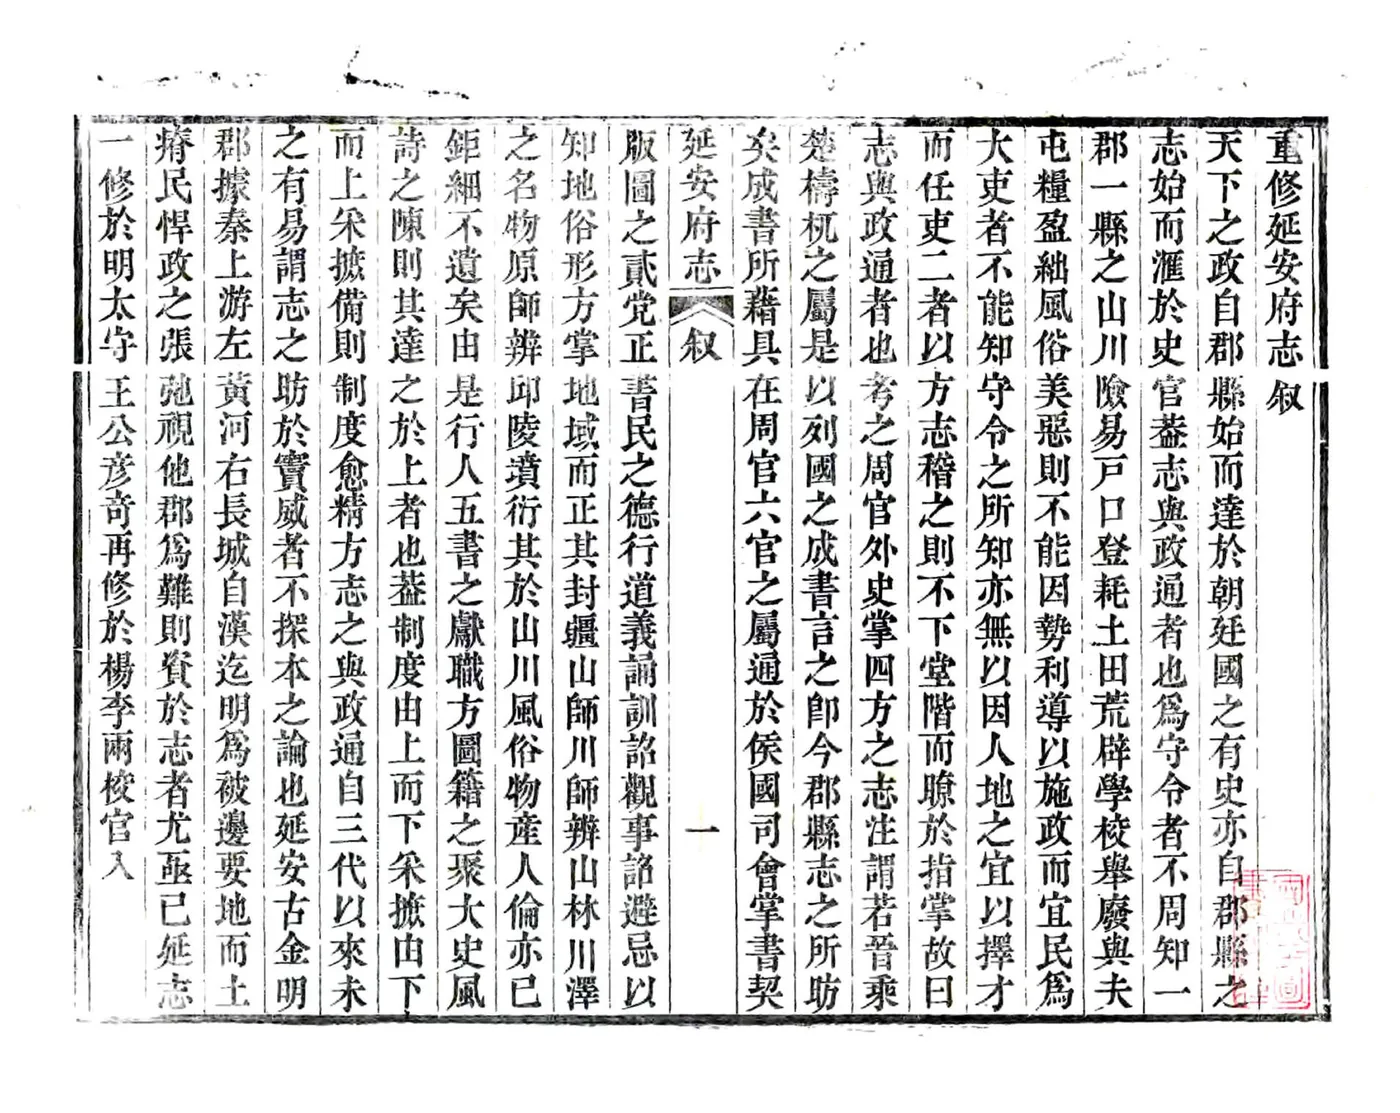 重修延安府志叙
天下之政自郡縣始而達於朝廷國之有史亦自郡縣之
志始而滙於史官葢志與政通者也爲守令者不周知一
郡一縣之山川險易戸口登耗土田荒辟學校舉廢與夫
屯糧盈絀風俗美惡則不能因勢利導以施政而宜民爲
大吏者不能知守令之所知亦無以因人地之宜以擇才
而任吏二者以方志稽之則不下堂階而瞭於指掌故曰
志與政通者也考之周官外史掌四方之志注謂若晉乘
楚檮杌之屬是以列國之成書言之卽今郡縣志之所昉
矣成書所藉具在周官六官之屬通於侯國司會掌書契
延安府志 叙 一
版圖之貳党正書民之德行道義誦訓詔觀事詔避忌以
知地俗形方掌地域而正其封疆山師川師辨山林川澤
之名物原師辨邱陵墳衍其於山川風俗物產人倫亦已
鉅細不遺矣由是行人五書之獻職方圖籍之聚大史風
詩之陳則其達之於上者也葢制度由上而下采摭由下
而上采摭備則制度愈精方志之與政通自三代以來未
之有易謂志之昉於竇威者不探本之論也延安古金明
郡據秦上游左黃河右長城自漢迄明爲被邊要地而土
瘠民悍政之張弛視他郡爲難則資於志者尤亟已延志
一修於明太守王公彦奇再修於楊李兩校官入